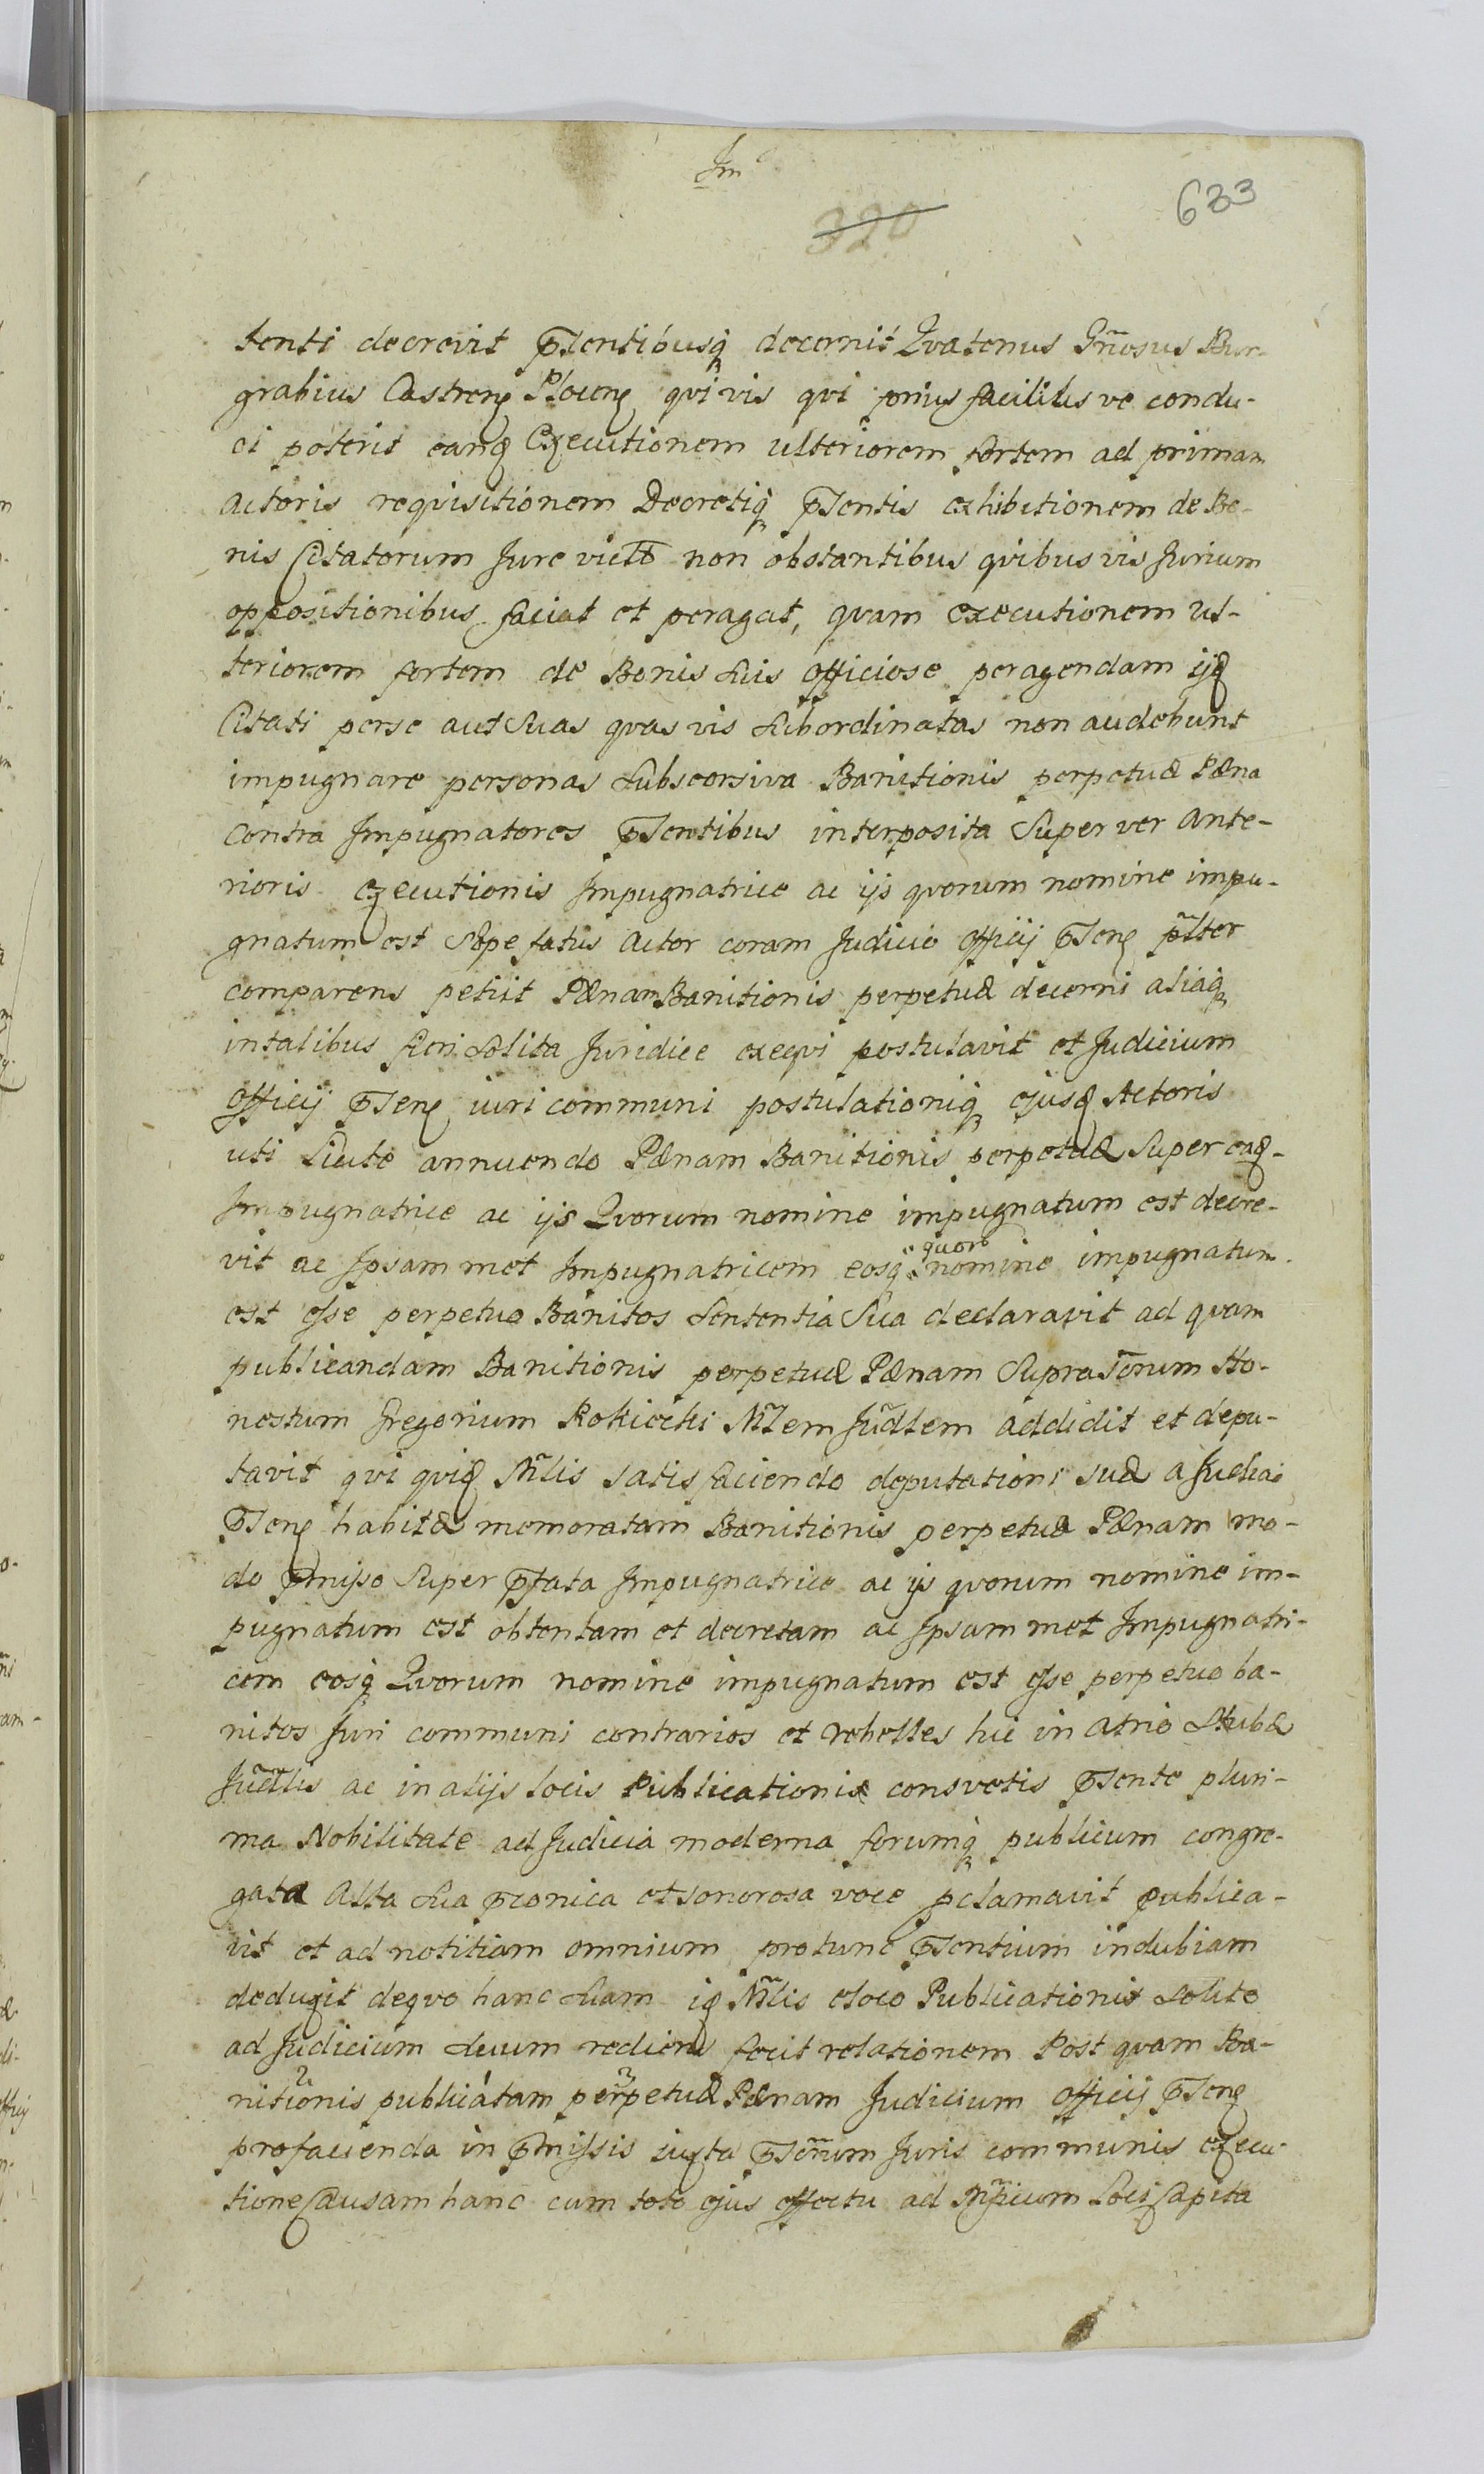 Im
320
633
tenti decrevit p̄sentibusq̨ decernit Qvatenus Gn̄osus Bur-
grabius Castren̄ Plocen̄ qvivis qvi prius facilius ve condu-
ci poterit eand̄ Executionem ulteriorem fortem ad primam
Actoris reqvisitionem Decretiq̨ p̄sentis exhibitionem de Bo-
nis Citatorum Jure victo᷒ non obstantibus qvibus vis Jurium
oppositionibus faciat et peragat, qvam executionem ul-
teriorem fortem de Bonis suis officiose peragendam ijd̄
Citati per se aut suas qvas vis subordinatas non audebunt
impugnare personas sub seorsiva Banitionis perpetuæ Pæna
contra Impugnatores p̄sentibus interposita Super ver ante-
rioris executionis Impugnatrice ac ijs qvorum nomine impu-
gnatum est sæpefatus Actor coram Judicio officij p̄sen̄ p̄lter
comparens petiit PænamBanitionis perpetuæ decerni aliaq̨
in talibus fieri solita Juridice exeqvi postulavit et Judicium
officij p̄sen̄ iuri communi postulationiq̨ ejusd̄ Actoris
uti licite annuendo Pænam Banitionis perpetuæ Super ead̄
Impugnatrice ac ijs Qvorum nomine impugnatum est decre-
vit ac Ipsam met Impugnatricem eosq̨ quor᷒ nomine impugnatum
est esse perpetuo Banitos sententia sua declaravit ad qvam
publicandam Banitionis perpetuæ Pænam Suprascr̄um Ho-
nestum Gregorium Rokicki Mr̄lem Jud̄lem addidit et depu-
tavit qvi qvid̄ Mr̄lis satisfaciendo deputationi suæ a Judicio
p̄sen̄ habitæ memoratam Banitionis perpetuæ Pænam mo-
do p̄misso Super p̄fata Impugnatrice ac ijs qvorum nomine im-
pugnatum est obtentam et decretam ac Ipsam met Impugnatri-
cem eosq̨ Qvorum nomine impugnatum est esse perpetuo ba-
nitos Juri communi contrarios et rebelles hic in atrio Stubæ
Jud̄lis ac in alijs locis Publicationis consvetis p̄sente pluri-
ma Nobilitate ad Judicia moderna forumq̨ publicum congre-
gata Alta sua p̄conica et sonorosa voce p̱clamavit publica-
vit et ad notitiam omnium pro tunc p̄sentium indubiam
deduxit deqvo hanc suam id̄ Mr̄lis e loco Publicationis solito
ad Judicium suum rediens fecit relationem Post qvam Ba-
nitionis publicatam perpetuæ Pænam Judicium officij p̄sen̄
pro facienda in p̄missis iuxta p̄scr̄um Juris communis execu-
tione Causam hanc cum toto ejus effectu ad Mr̄icum Loci Capita